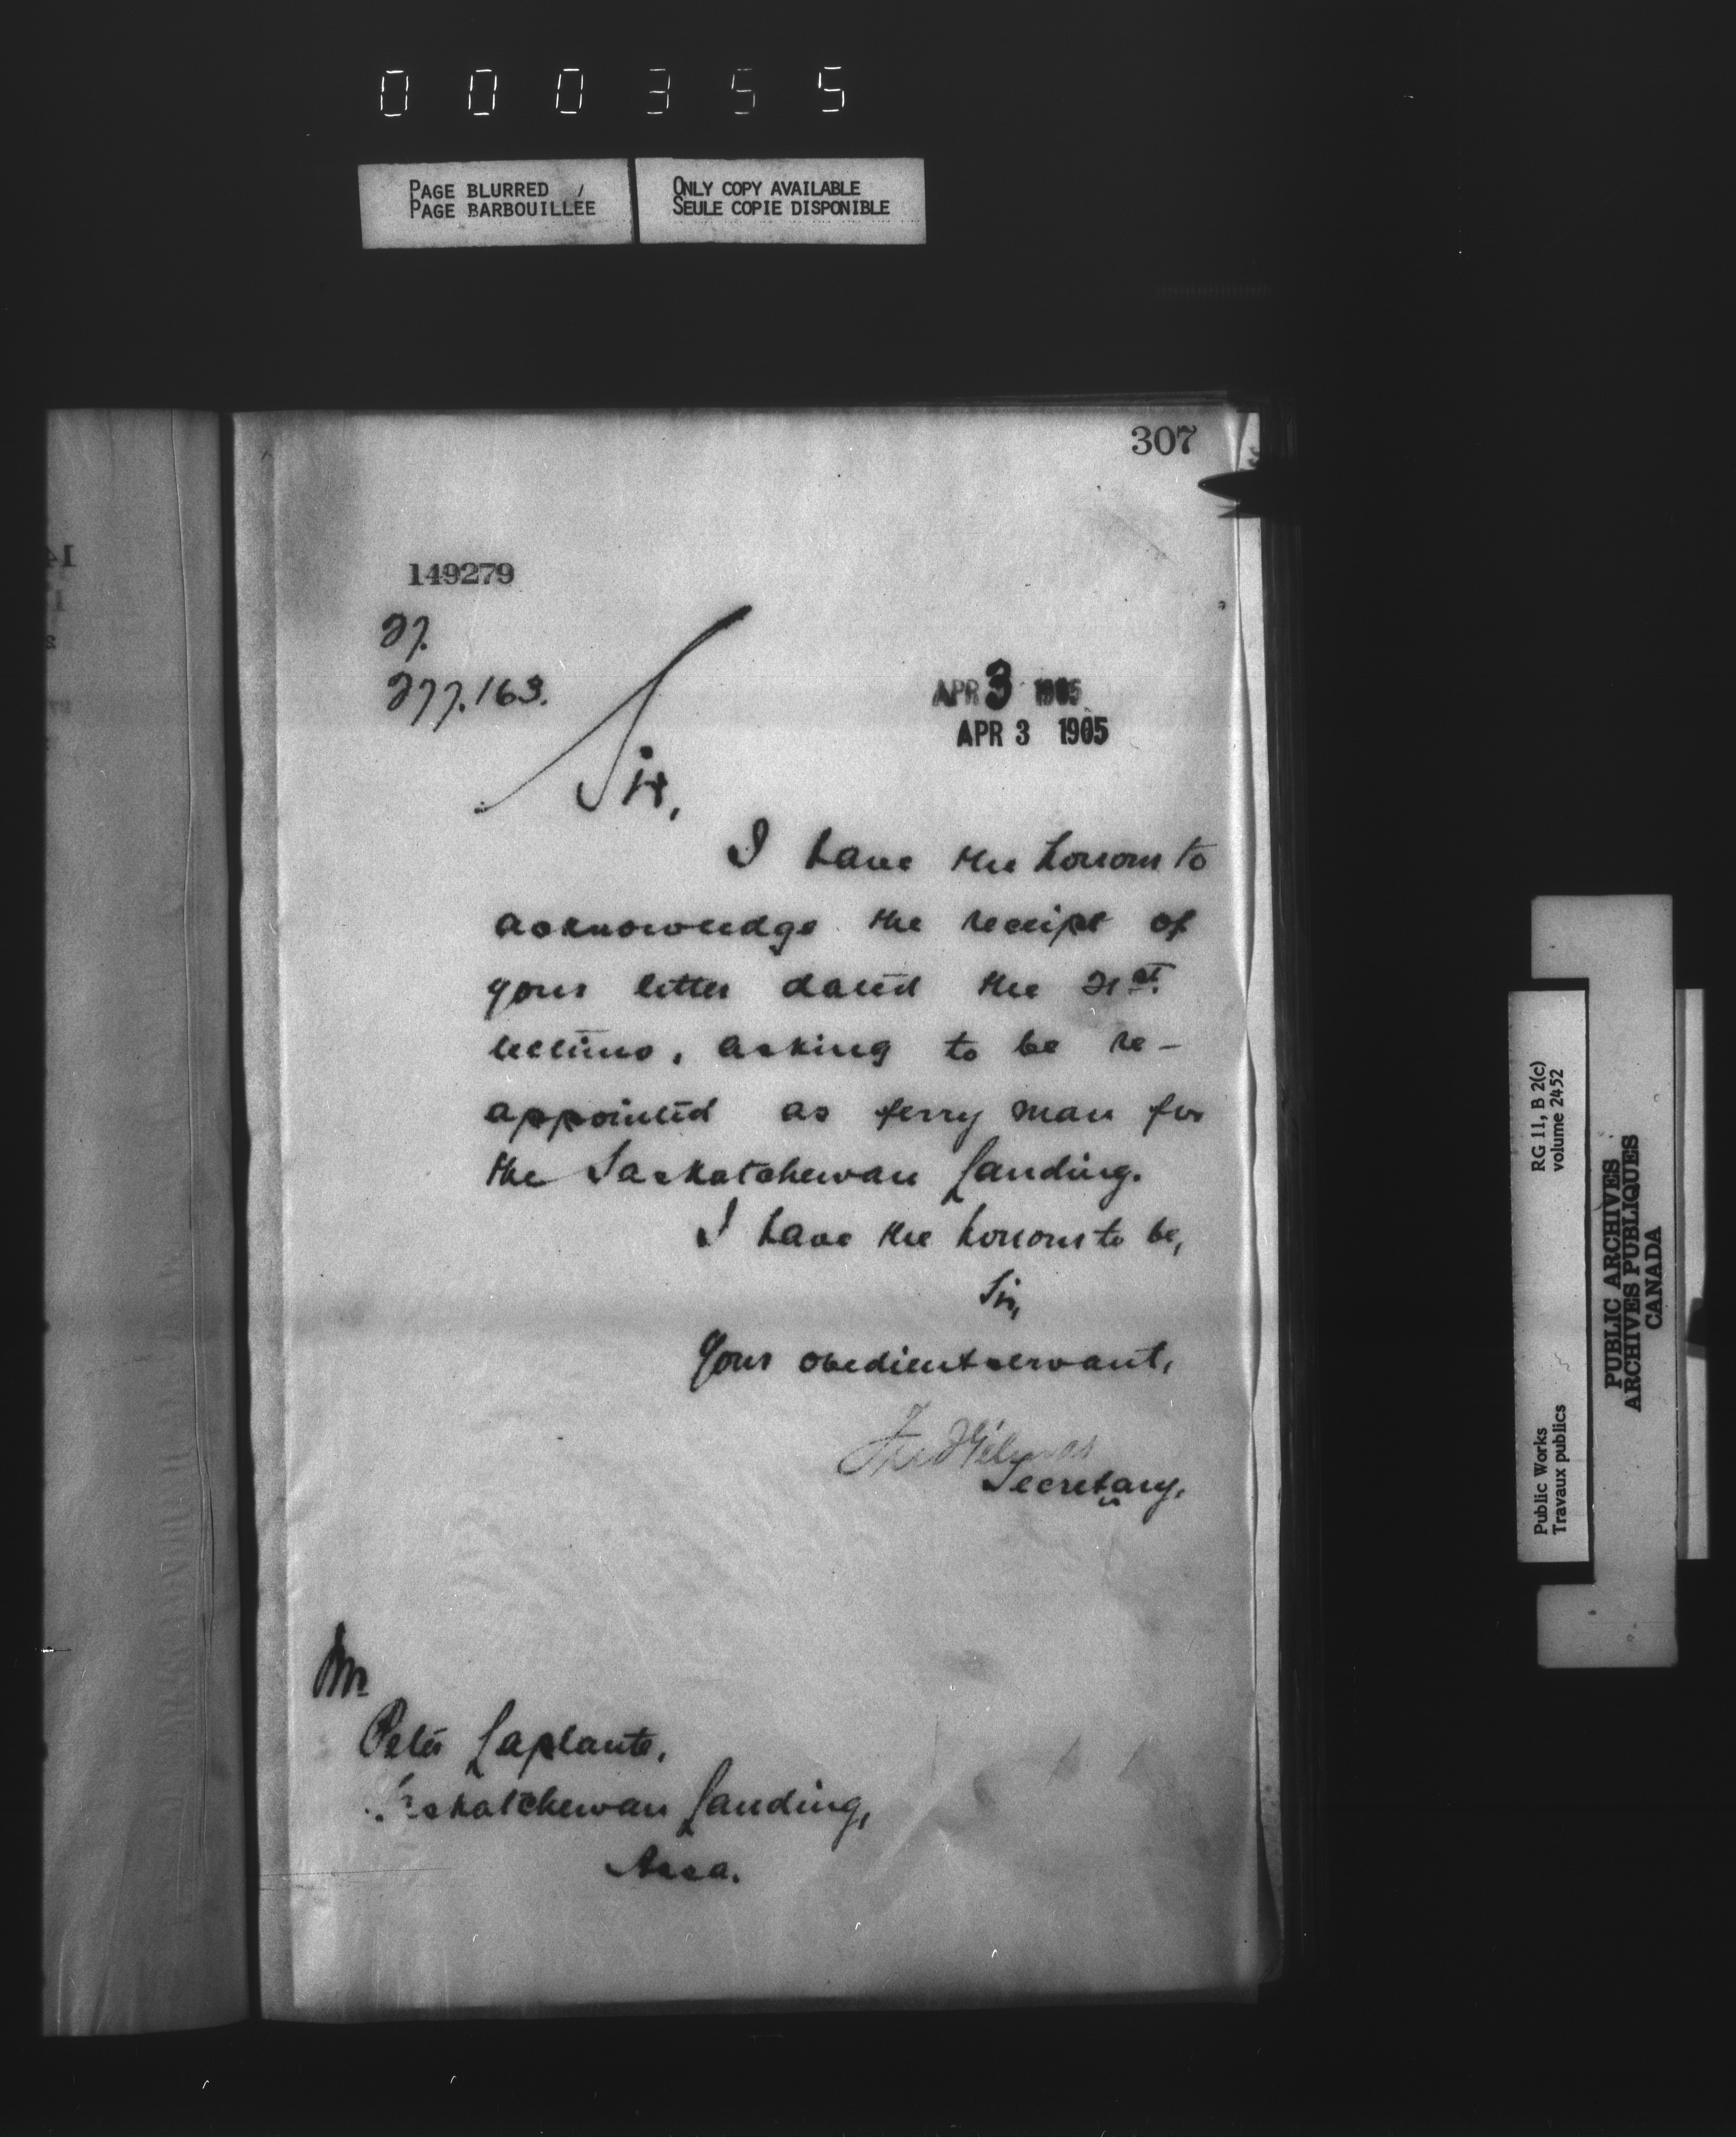 000355
PAGE BLURRED /
PAGE BARBOUILLÉE
ONLY COPY AVAILABLE
SEULE COPIE DISPONIBLE
307
149279
27.
277.163.
APR 3 1905
APR 3 1905
Sir,
I have the honour to
acknowledge the receipt of
your letter dated the 21st.
ultimo, asking to be re-
appointed as ferry man for
the Saskatchewan Landing.
I have the honour to be,
Sir,
Your obedient servant,
Fred Gélinas
Secretary.
Mr
Peter Laplante,
Saskatchewan Landing,
Assa.
RG 11, B 2(c)
volume 2452
Public Works
Travaux publics
PUBLIC ARCHIVES
ARCHIVES PUBLIQUES
CANADA